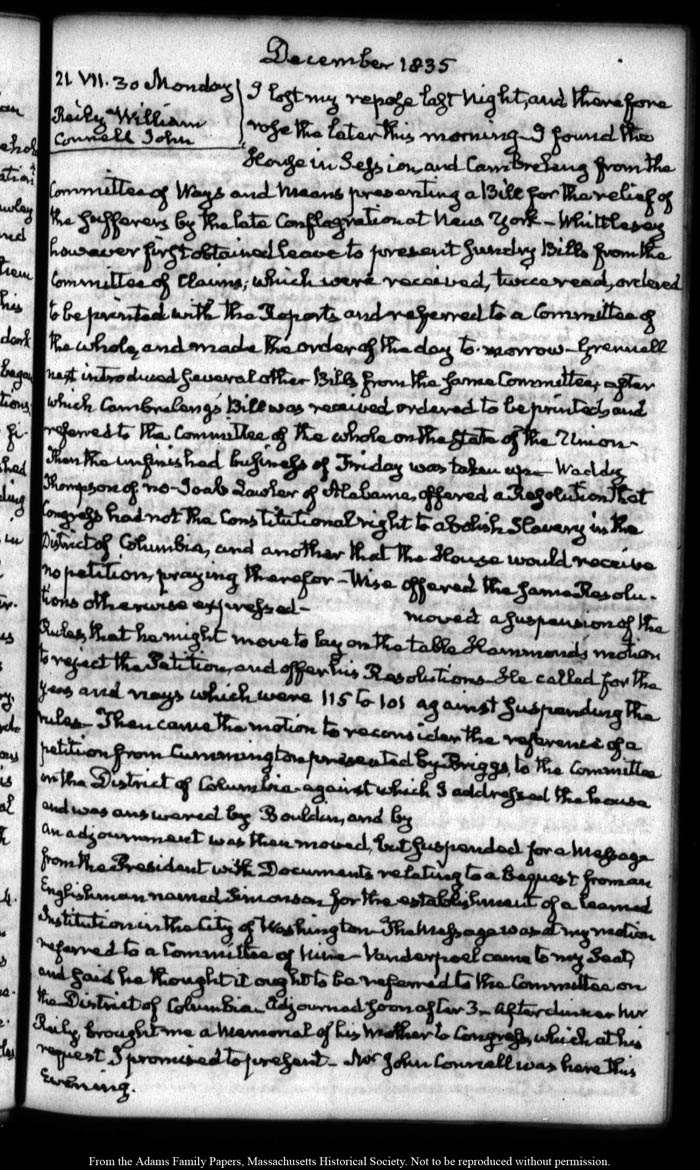 December 1835
21 VII. 30 Monday
Reily William
Connell John
I lost my repose last Night, and therefore
rose the later this morning. I found the
House in Session, and Cambreleng from the
Committee of Ways and Means presenting a Bill for the relief of
the sufferers by the late Conflagration at New York – Whittlesey
however first obtained leave to present sundry Bills from the
Committee of Claims; which were received, twice read, ordered
to be printed with the Reports and referred to a Committee of
the whole, and made the order of the day to-morrow – Grennell
next introduced several other Bills from the same Committee, after
which Cambreleng's Bill was received ordered to be printed, and
referred to the Committee of the whole on the State of the Union –
Then the unfinished business of Friday was taken up – Waddy
Thompson of no – Joab Lawler of Alabama, offered a Resolution that
Congress had not the Constitutional right to abolish Slavery in the
District of Columbia, and another that the House would receive
no petition, praying therefor – Wise offered the same Resolu-
tions otherwise expressed – moved a suspension of the
Rules, that he might move to lay on the table Hammond's motion
to reject the Petition, and offer his Resolutions – He called for the
yeas and nays which were 115 to 101 against suspending the
rules – Then came the motion to reconsider the reference of a
petition from Cummington presented by Briggs, to the Committee
on the District of Columbia – against which I addressed the house
and was answered by Bouldin, and by
An adjournment was then moved, but suspended for a Message
from the President with Documents relating to a Bequest from an
Englishman named Simonson for the establishment of a learned
Institution in the City of Washington – The Message was at my motion
referred to a Committee of Nine – Vanderpoel came to my Seat,
and said he thought it ought to be referred to the Committee on
the District of Columbia – Adjourned soon after 3 – After dinner Mr
Reily brought me a Memorial of his Mother to Congress, which at his
request I promised to present – Mr John Connell was here this
Evening.
From the Adams Family Papers, Massachusetts Historical Society. Not to be reproduced without permission.